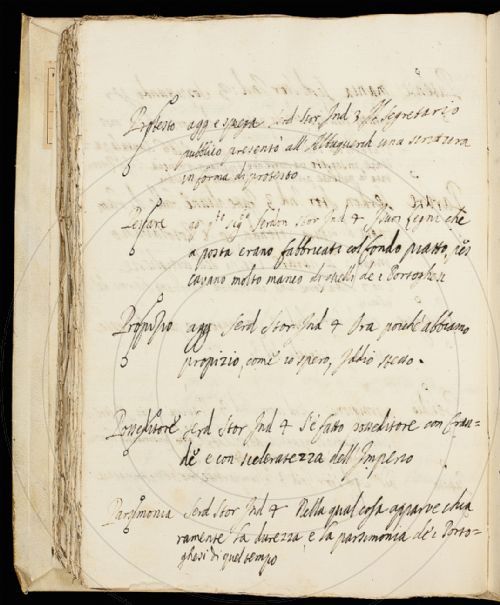 Protesto agg e spega Serd Stor Ind 3 Il Segretario
publico presentò all'Albuquerch una scrittura
in forma di protesto
Pescare Serdon Stor Ind 4 I suoi legni che
a posta erano fabbricati col fondo piatto, pes
cavano molto manco di quelli de i Portoghesi
Propizio agg Serd Stor Ind 4 Ora poiche abbiamo
propizio, come io spero, Iddio stesso.
Possditore Serd Stor Ind 4 S'è fatto possditore con frau=
de e con sceleratezza dell'Imperio
Parsimonia Serd Stor Ind 4 Nella qual cosa apparve chia
ramente la durezza e la parsimonia de i Porto=
ghesi di quel tempo